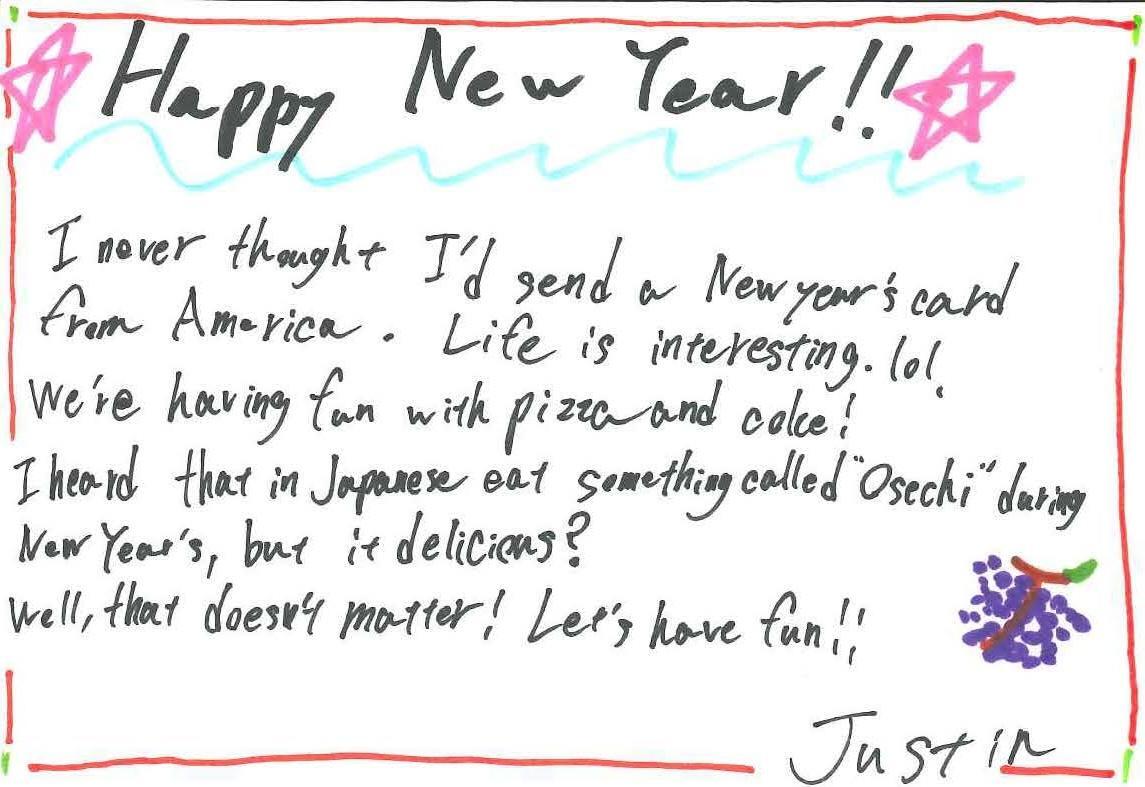 Happy New Year!!
I never thought I'd send a New year's card
from America. Life is interesting. lol.
We're having fun with pizza and coke!
I heard that in Japanese eat something called "Osechi" during
New Year's, but it delicious?
Well, that doesn't matter! Let's have fun!!
Justin